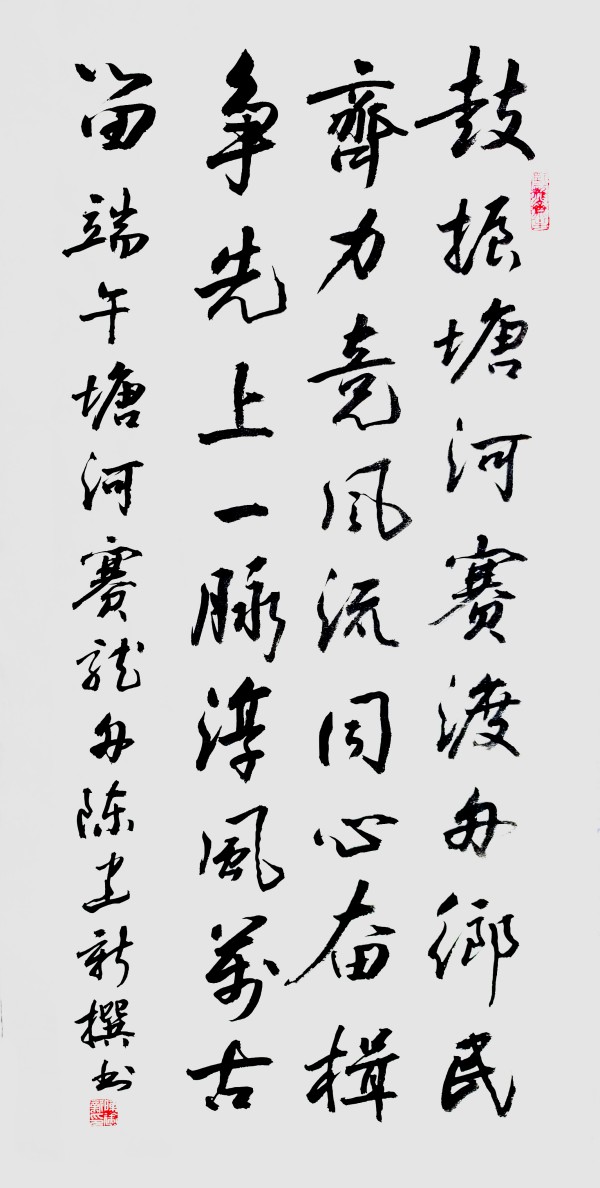 鼓振塘河赛渡舟鄉民
齊力竞风流同心奋楫
争先上一脉淳風萬古
留端午塘河赛龙舟陈建新撰书